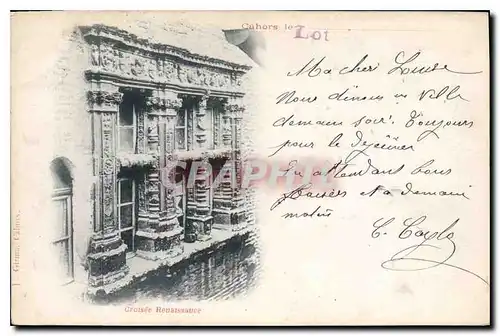 Cahors le
Lot
Ma cher Louise
Nous dinons en ville
demain soir. Toujours
pour le dejeuner
En attendant bons
Baisers et a demain
matin
C. Caylo
CPArama
Croisée Renaissance
Girma, Cahors.